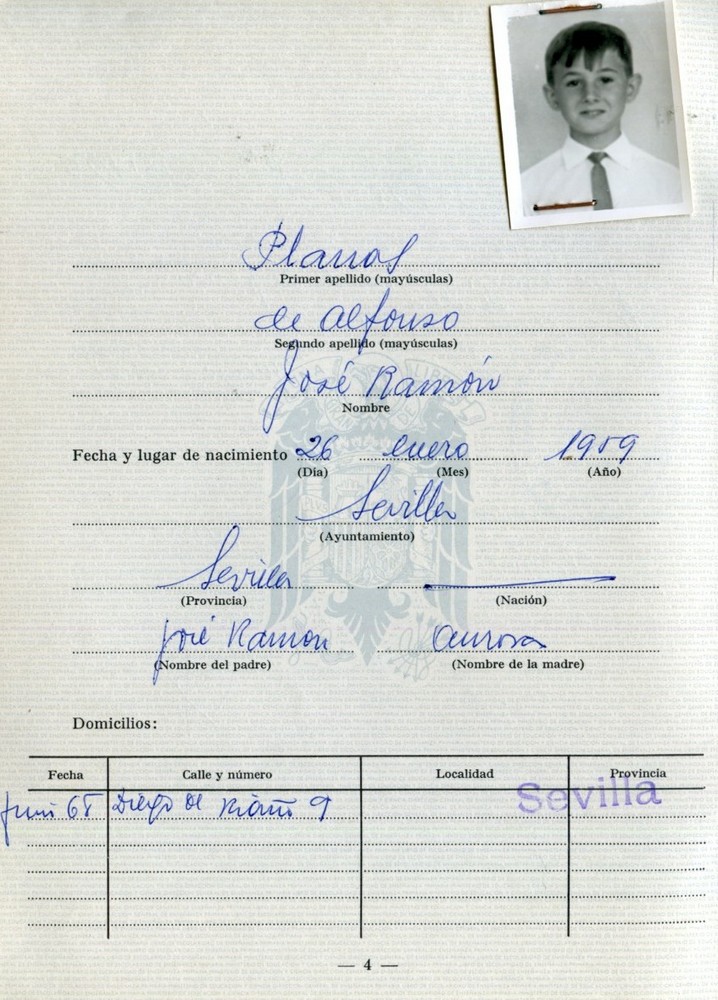 Planas
Primer apellido (mayúsculas)
de Alfonso
Segundo apellido (mayúsculas)
José Ramón
Nombre
Fecha y lugar de nacimiento 26 enero 1959
(Día) (Mes) (Año)
Sevilla
(Ayuntamiento)
Sevilla
(Provincia) (Nación)
José Ramon Aurora
(Nombre del padre) (Nombre de la madre)
Domicilios:
Fecha Calle y número Localidad Provincia
68 Diego de Riaño 9 Sevilla
— 4 —